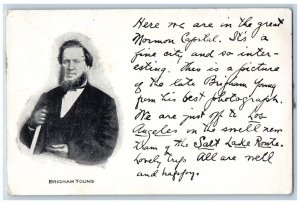 Here we are in the great
Mormon Capitol. It's a
fine city and so inter-
esting. This is a picture
of the late Brigham Young
from his best photograph.
We are just off to Los
Angeles on the swell new
train of the Salt Lake Route.
Lovely trip. All are well
and happy.
BRIGHAM YOUNG